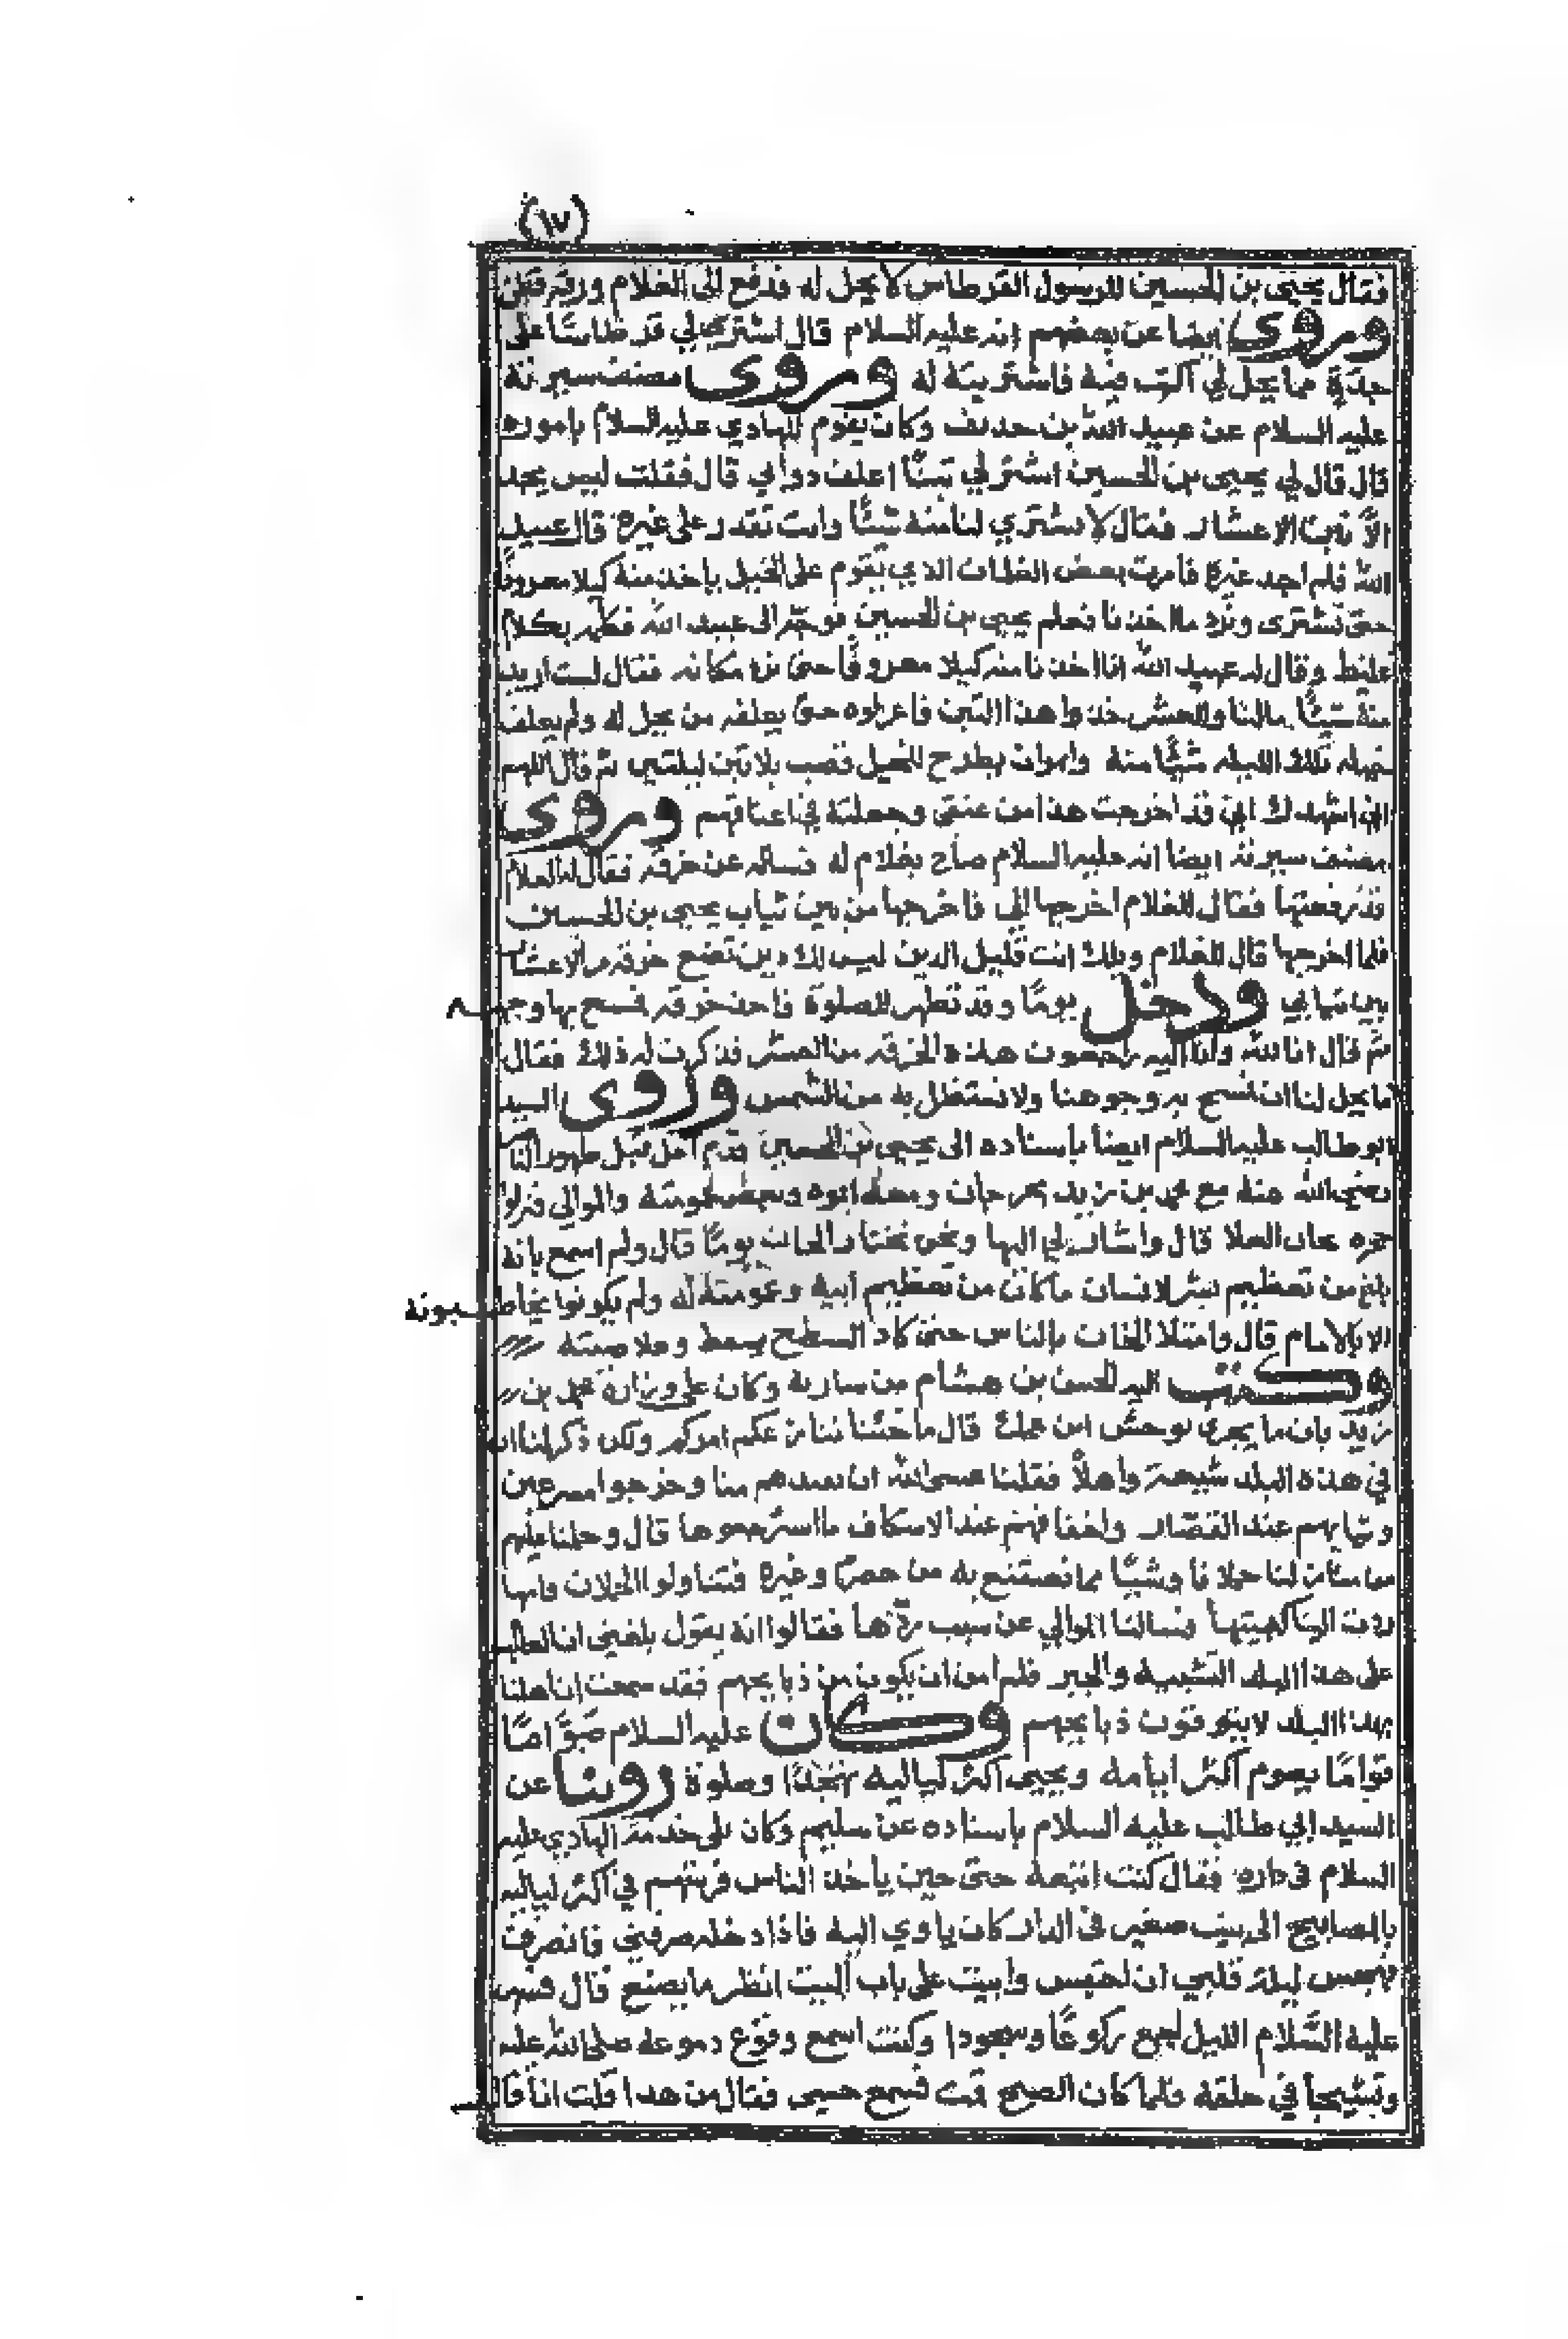 (١٧)
فقال يحيى بن الحسين للرسول القرطاس لا يحل له فدفع الى الغلام ورقه قطن
وروى ايضا عن بعضهم انه عليه السلام قال اشتر لي قرطاسا على
حدة مما يحل لي اكتب فيه فاشتريته له وروى مصنف سيرته
عليه السلام عن عبيد الله بن حذيف وكان يقوم للهادي عليه السلام باموره
قال قال لي يحيى بن الحسين اشتر لي تبنًا اعلف دوابي قال فقلت ليس يجد
الا تبن الاعشار فقال لا تشتري لنا منه شيئًا وانت تقدر على غيره قال عبيد
الله فلم اجد غيره فامرت بعض الغلمان الذي يقوم على الخيل ياخذ منه كيلا معروفًا
حتى نشترى ونرد ما اخذنا فعلم يحيى بن الحسين فوجه الى عبيد الله فكلمه بكلام
غليظ وقال له عبيد الله انا اخذنا منه كيلا معروفًا حتى نرد مكانه فقال لست اريد
منه شيئًا مالنا وللعشر خذوا هذا التبن فاعزلوه حتى يعلفه من يحل له ولم يعلف
خيله تلك الليله شيًا منه وامران يطرح للخيل قصب بلا تبن ليلتي ثم قال اللهم
اني اشهدك اني قد اخرجت هذا من عنقي وجعلته في اعناقهم وروى
مصنف سيرته ايضا انه عليه السلام صاح بغلام له فساله عن خرقه فقال له الغلام
قد رفعتها فقال للغلام اخرجها الي فاخرجها من بين ثياب يحيى بن الحسين
فلما اخرجها قال للغلام ويلك انت قليل الدين ليس لك دين تضع خرقه من الاعشار
بين ثيابي ودخل يومًا وقد تطهر للصلوة فاخذ خرقه فمسح بها وجهه
ثم قال انا لله وانا اليه راجعون هذه الخرقه من العشر فذكرت له ذلك فقال
ما يحل لنا ان نمسح به وجوهنا ولا نستظل به من الشمس وروى السيد
ابو طالب عليه السلام ايضا باسناده الى يحيى بن الحسين قدم امل قبل ظهور الناصر
رضي الله عنه مع محمد بن زيد بجرجان ومعه ابوه وبعض عمومته والموالي فنزلوا
حجره بخان العلا قال واشار لي اليها ونحن نجتاز الخان يومًا قال ولم اسمع بانه
بلغ من تعظيم بشر لانسان ما كان من تعظيم ابيه وعمومته له ولم يكونوا يخاطبونه
الا بالامام قال وامتلا الخان بالناس حتى كاد السطح يسقط وعلا صيته
وكتب اليه الحسن بن هشام من ساريه وكان على وزارة محمد بن
زيد بان ما يجري يوحش ابن عمك قال ما جئنا ننازعكم امركم ولكن ذكر لنا ان
في هذه البلد شيعة واهلًا فقلنا عسى الله ان يفيدهم منا وخرجوا مسرعين
وثيابهم عند القصار واخفافهم عند الاسكاف ما استرجعوها قال وحملنا عليهم
من منازلنا حملانا وشيئًا مما نصطنع به من حصرم وغيره فتناولوا الحملان فاما
ردت الينا كهيئتها فسالنا الموالي عن سبب ردها فقالوا انه يقول بلغني ان الغالب
على هذا البلد التشبيه والجبر فلم امن ان يكون من ذبايحهم فقد سمعت ان اهلنا
بهذا البلد لا يتوقون ذبايحهم وكان عليه السلام صوَّامًا
قوامًا يصوم اكثر ايامه ويحيى اكثر لياليه تهجدًا وصلوة روينا عن
السيد ابي طالب عليه السلام باسناده عن سليم وكان يلي خدمة الهادي عليه
السلام في داره فقال كنت اتبعه حتى حين ياخذ الناس فرشهم في اكثر لياليه
بالمصابيح الى بيت صغير في الدار كان ياوي اليه فاذا دخله صرفني فانصرفت
فهجس ليلة قلبي ان احتبس وابيت على باب البيت انظر ما يصنع قال فسهر
عليه السَّلام الليل اجمع ركوعًا وسجودا وكنت اسمع وقوع دموعه صلى الله عليه
ونشيجا في حلقه فلما كان الصبح قمت فسمع حسي فقال من هذا قلت انا قال